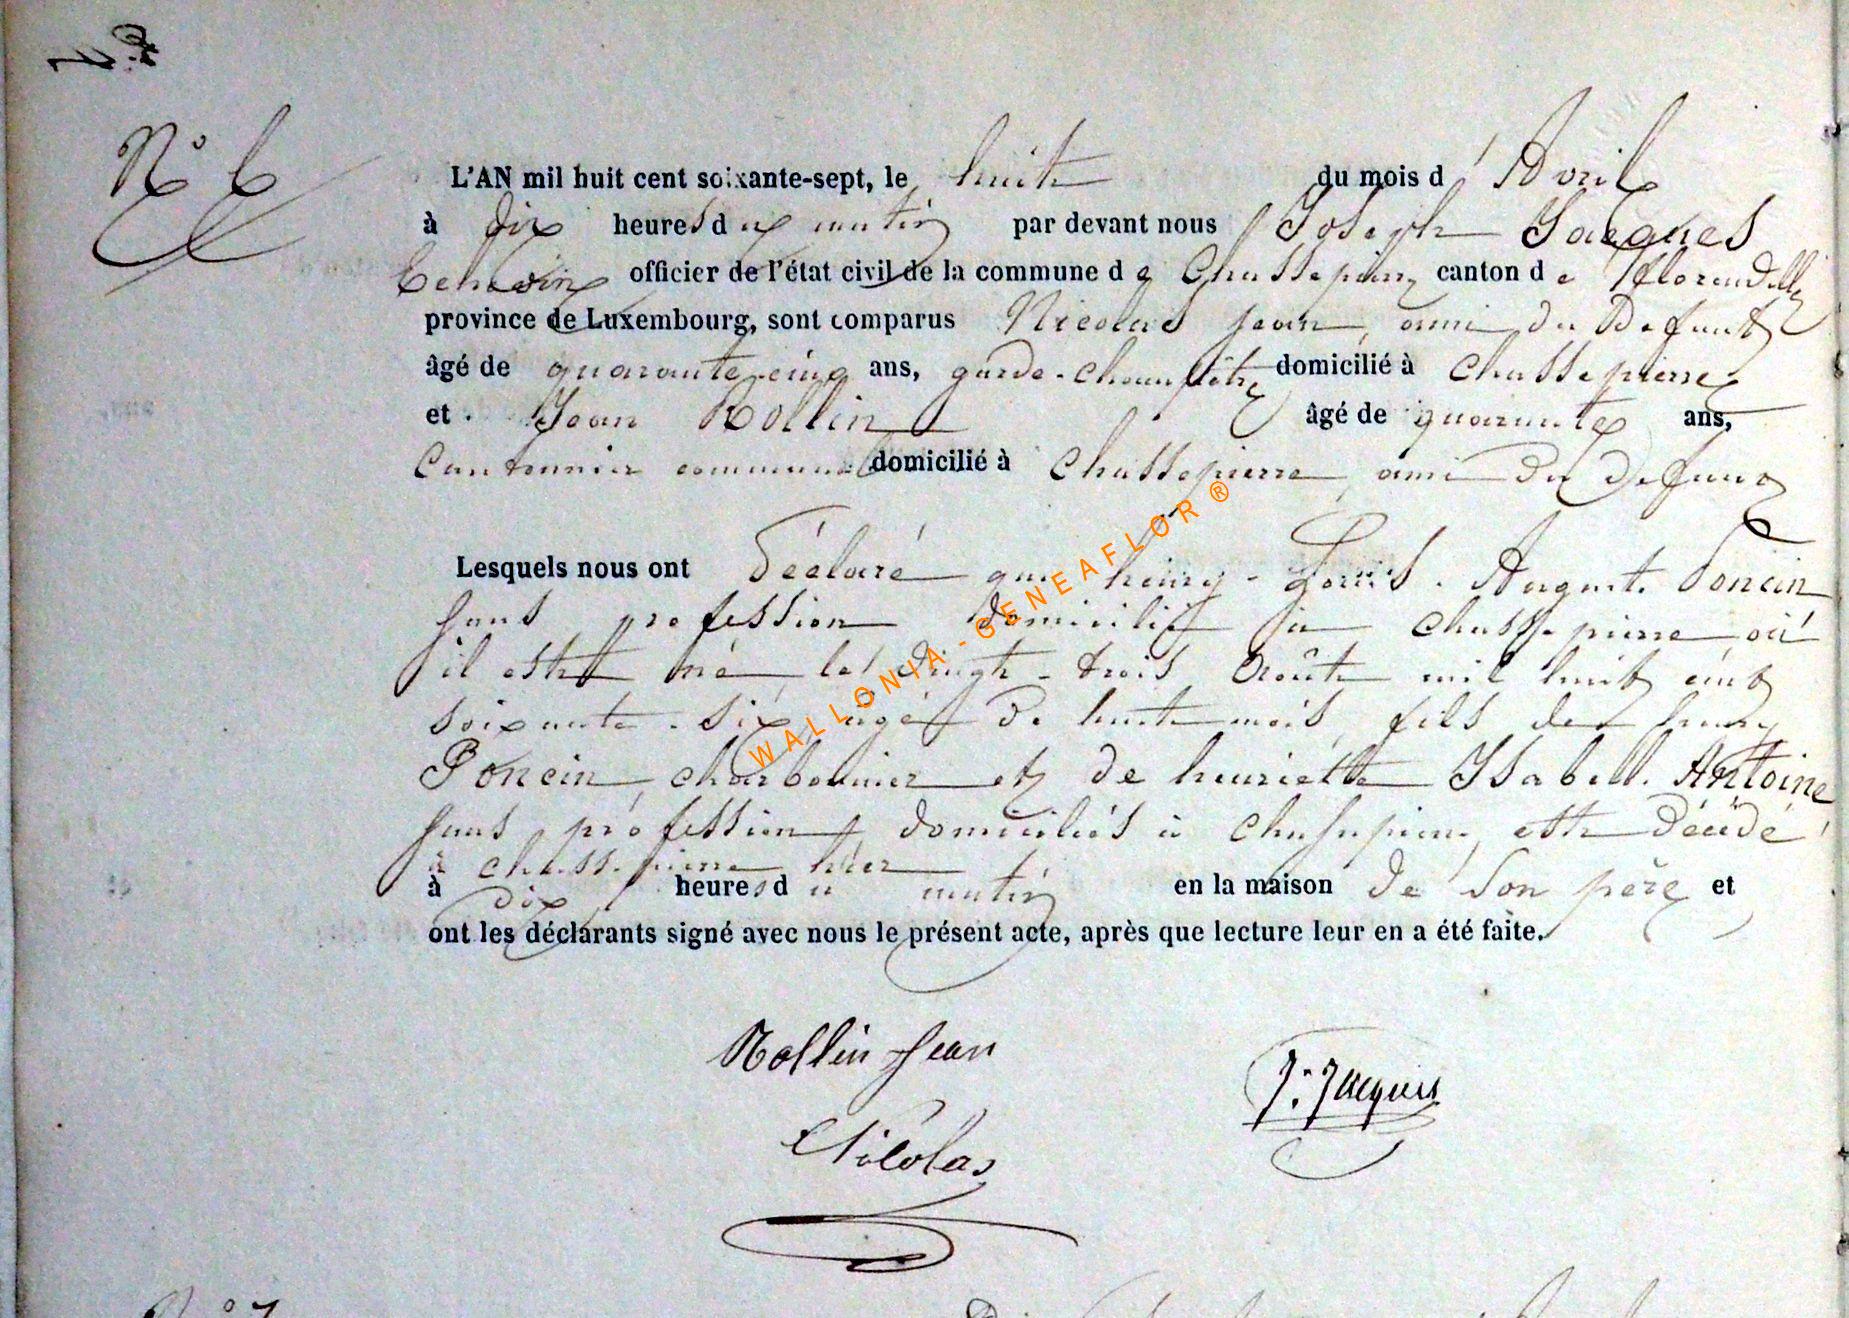 N° 6
L'AN mil huit cent soixante-sept, le huit du mois d'Avril
à dix heures du matin par devant nous Joseph Jacques
Echevin officier de l'état civil de la commune de Chassepierre canton de florenville
province de Luxembourg, sont comparus Nicolas jean, ami du Defunt
âgé de quarante-cinq ans, garde-champêtre domicilié à Chassepierre
et Jean Rollin âgé de quarante ans,
Cantonnier communal domicilié à Chassepierre, ami du defunt
Lesquels nous ont déclaré que henry-Louis-August. Poncin
sans profession domicilié à Chassepierre où
il est né le vingt-trois Août mil huit cent
soixante-six, agé de huit mois, fils de henry
Poncin, charbonnier et de henriette Isabell. Antoine
sans profession domiciliés à Chassepierre, est décédé
à chassepierre hier
à dix heures du matin en la maison de son père et
ont les déclarants signé avec nous le présent acte, après que lecture leur en a été faite.
Rollin Jean
J. Jacques
Nicolas
N° 7
WALLONIA-GENEAFLOR ®